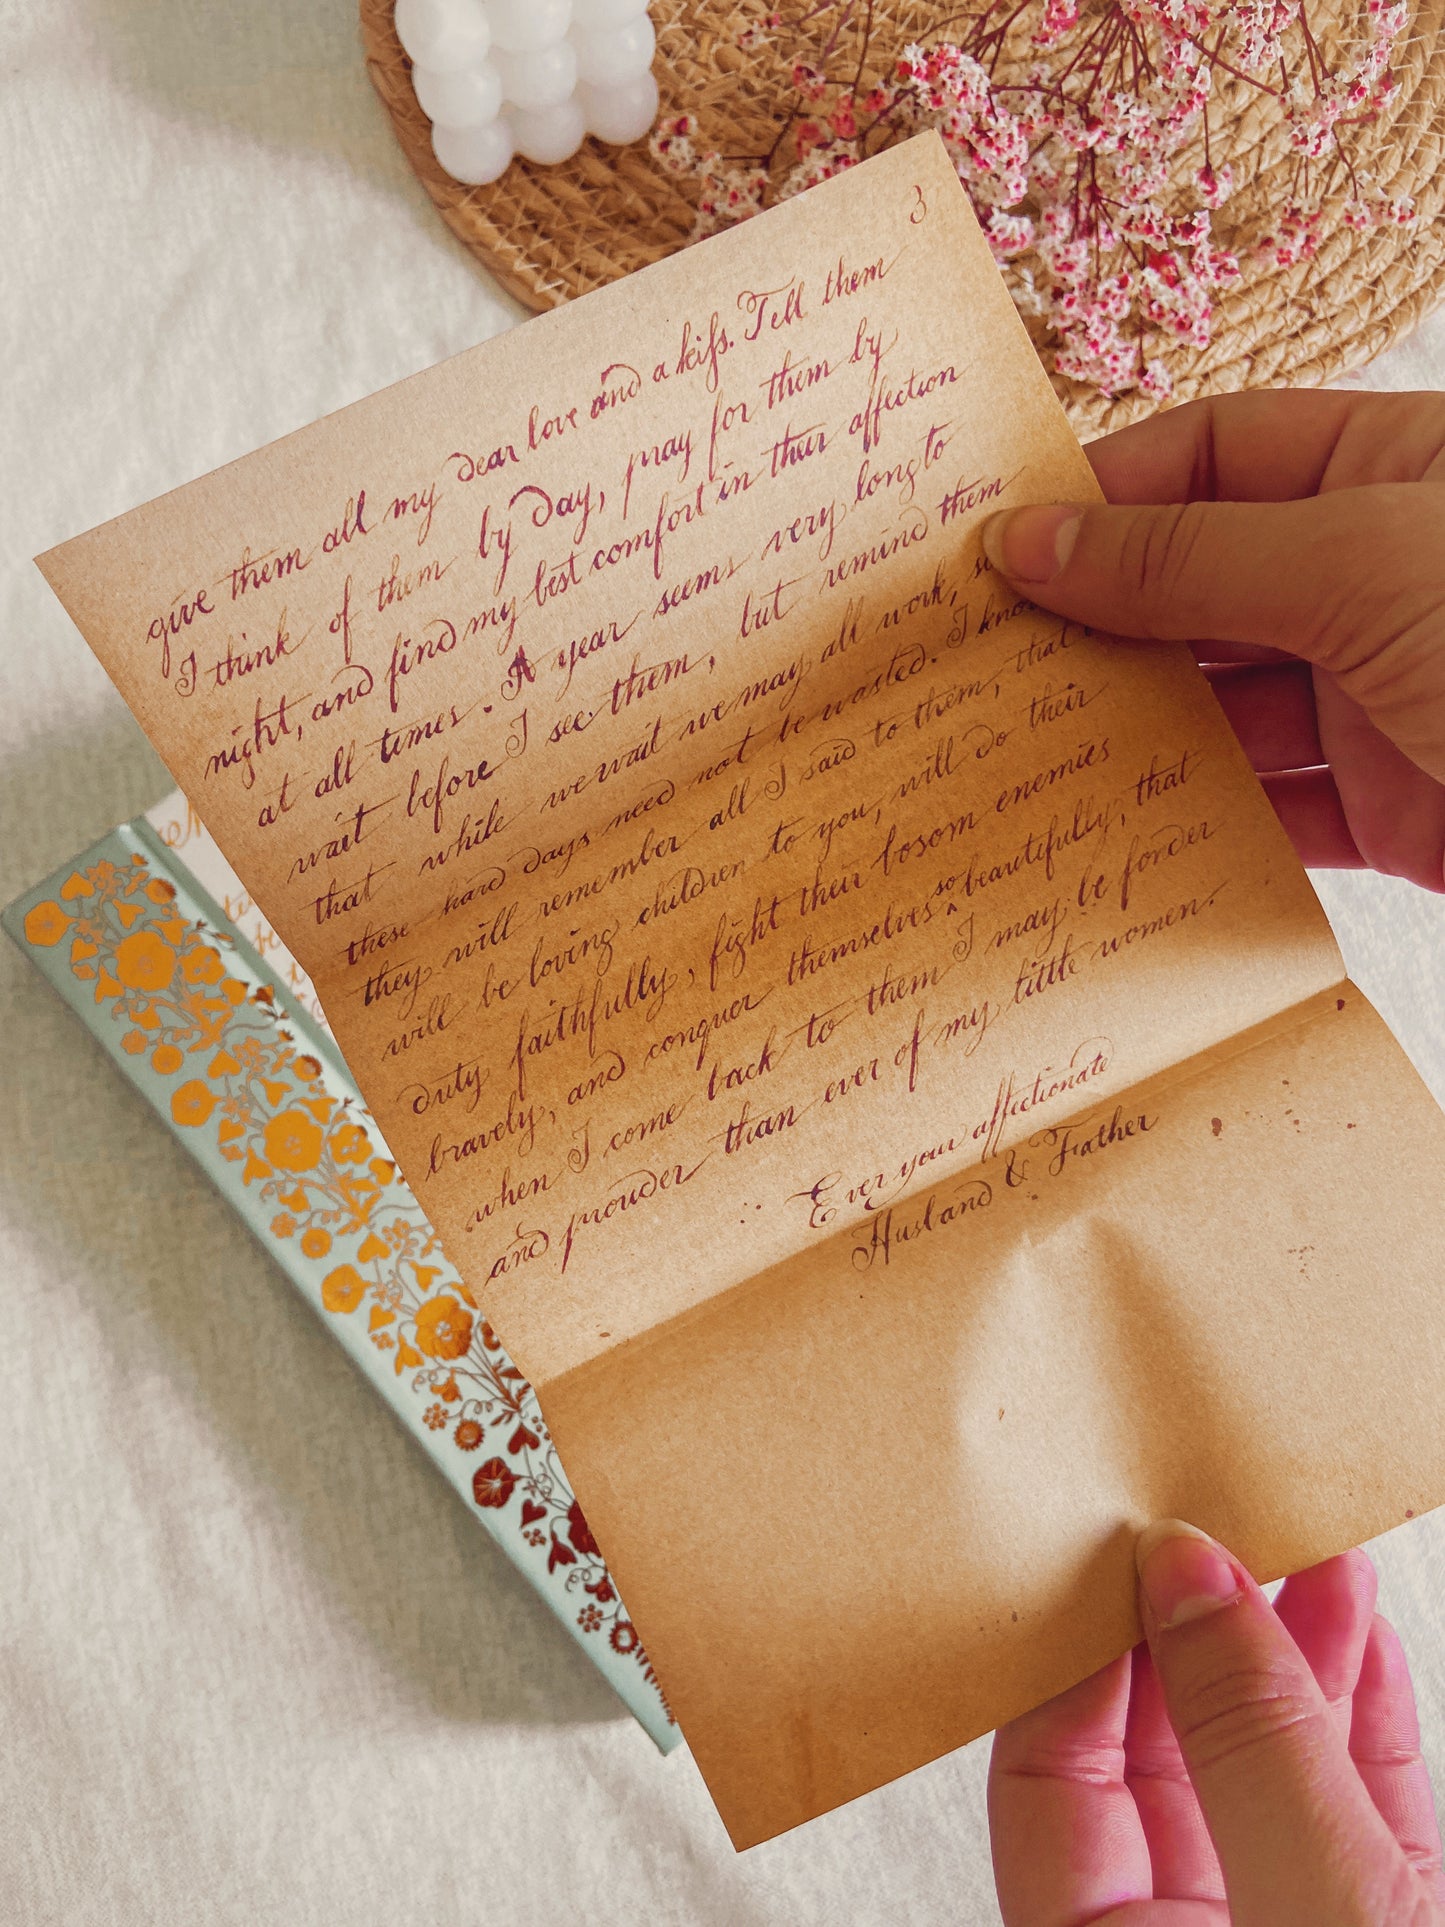 3
give them all my dear love and a kiſs. Tell them
I think of them by day, pray for them by
night, and find my best comfort in their affection
at all times. A year seems very long to
wait before I see them, but remind them
that while we wait we may all work, so
these hard days need not be wasted. I know
they will remember all I said to them, that
will be loving children to you, will do their
duty faithfully, fight their bosom enemies
bravely, and conquer themselves so beautifully, that
when I come back to them I may be fonder
and prouder than ever of my little women.
Ever your affectionate
Husband & Father